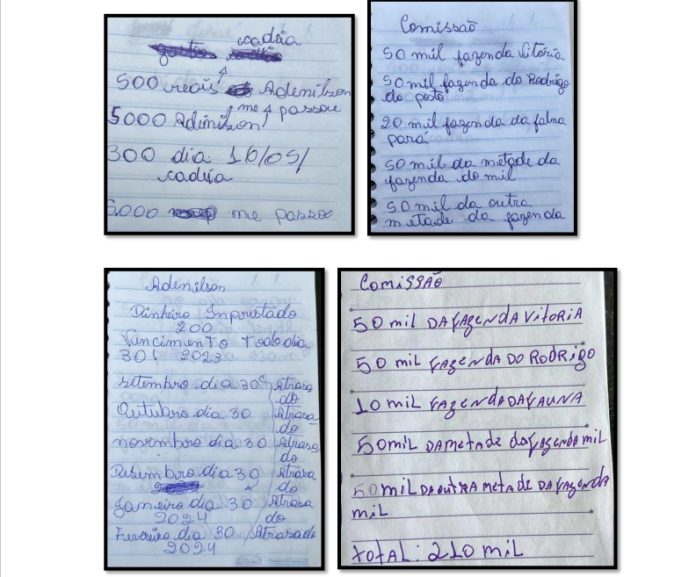 cadeia
500 reais Adenilson
me passou
5000 Adenilson
300 dia 10/05/
cadeia
5.000 me passou
Comissão
50 mil fazenda Vitória
50 mil fazenda do Rodrigo
do posto
20 mil fazenda da
para
50 mil da metade da
fazenda do mil
50 mil da outra
metade da fazenda
Adenilson
Dinheiro Imprestado
200
Vencimento Todo dia
30 2023
setembro dia 30 Atrasa
do
Outubro dia 30 Atrasa
do
novembro dia 30 Atrasa
do
Desembro dia 30 Atrasa
do
Janeiro dia 30 Atrasa
2024 do
Fevreiro dia 30 Atrasado
2024
COMISSÃO
50 mil DA FAZENDA VITORIA
50 mil FAZENDA DO RODRIGO
10 mil FAZENDA DA FAUNA
50 MIL DA METADE DA FAZENDA MIL
50 MIL DA OUTRA METADE DA FAZENDA
MIL
TOTAL: 210 MIL